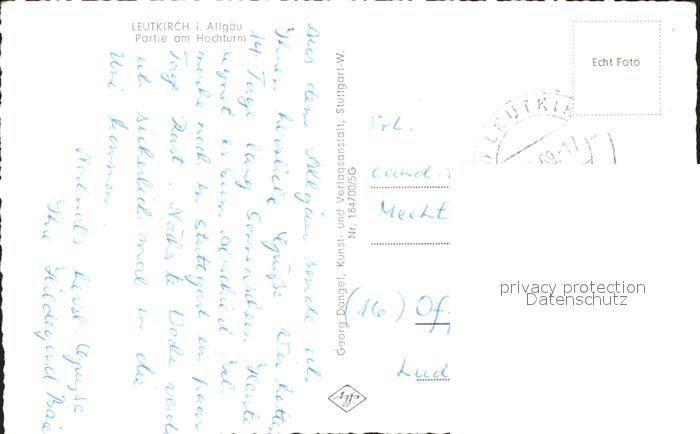 LEUTKIRCH i. Allgäu
Partie am Hochturm
Aus dem Allgäu sende ich
Ihnen herzliche Grüße. Wir hatten
14 Tage lang Sonnenschein. Heute
regnet es zum Abschied. Ich
mache noch in Stuttgart ein paar
Tage Rast. Nächste Woche werde
ich sicherlich mal in die
Uni kommen.
Nochmals herzl. Grüsse
Ihre Hildegund
Georg Dangel, Kunst- und Verlagsanstalt, Stuttgart-W.
Nr. 184700/5G
Echt Foto
LEUTKIR
Frl.
cand.
Mecht
(16) Of
Lud
privacy protection
Datenschutz